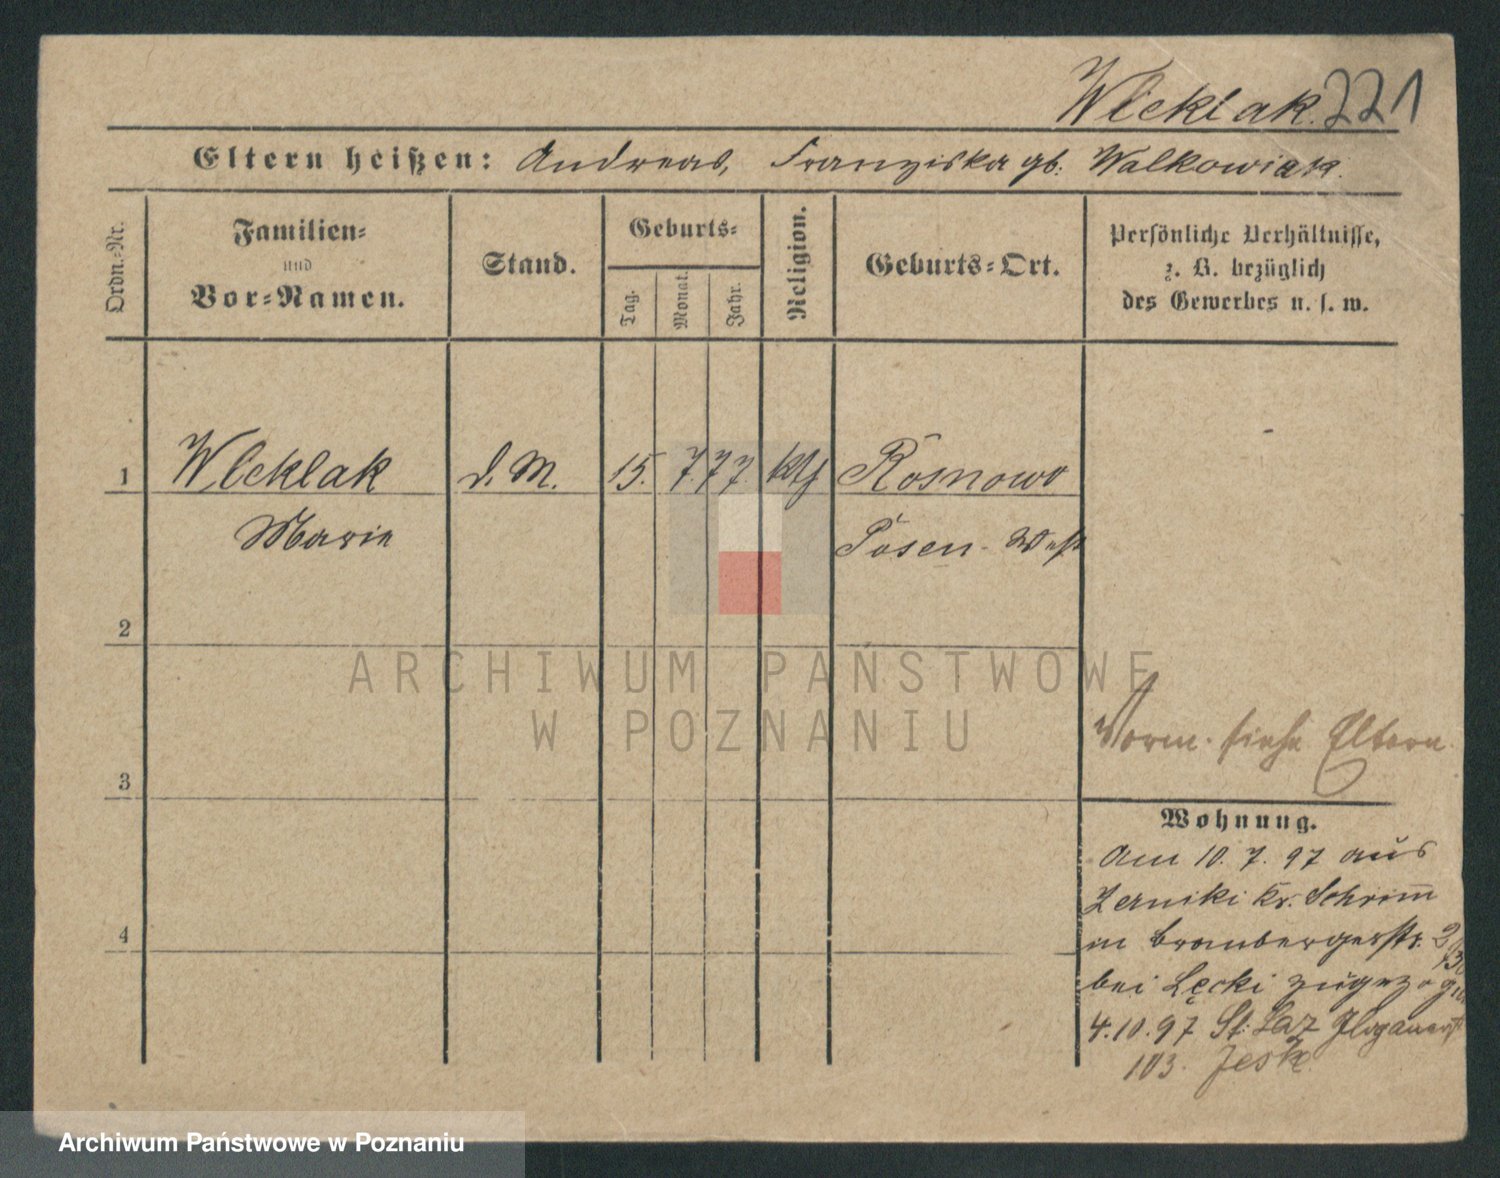 Wleklak. 221
Eltern heißen: Andreas, Franziska gb. Walkowiak.
Ordn.-Nr.
Familien-
und
Vor-Namen.
Stand.
Geburts-
Tag.
Monat.
Jahr.
Religion.
Geburts-Ort.
Persönliche Verhältnisse,
z. B. bezüglich
des Gewerbes u. s. w.
1 Wleklak d. M. 15. 7. 77 kth Rosnowo
Marie Posen-West
2
ARCHIWUM PAŃSTWOWE
W POZNANIU
Vorm. siehe Eltern.
3
Wohnung.
Am 10. 7. 97 aus
Zerniki Kr. Schrimm
in Brombergerstr.
bei Łęcki zugezogen
4
4.10.97 St: Laz Glogauerst
103. Jeske
Archiwum Państwowe w Poznaniu